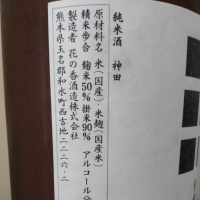 純米酒　神田
原材料名　米(国産)米麹(国産米)
精米歩合　麹米50%掛米90%　アルコール分
製造者　花の香酒造株式会社
熊本県玉名郡和水町西吉地２２２６-２